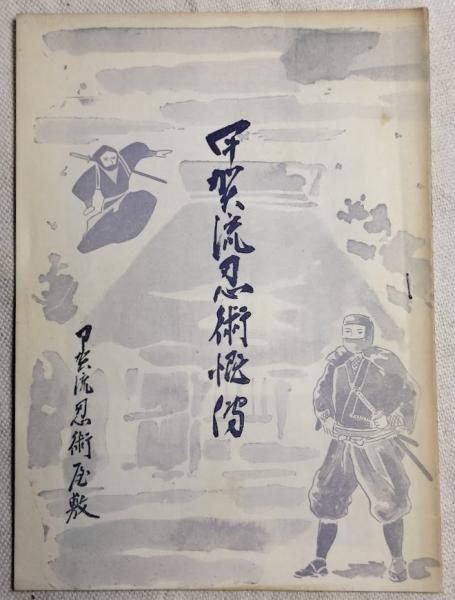 甲賀流忍術概傳
甲賀流忍術屋敷